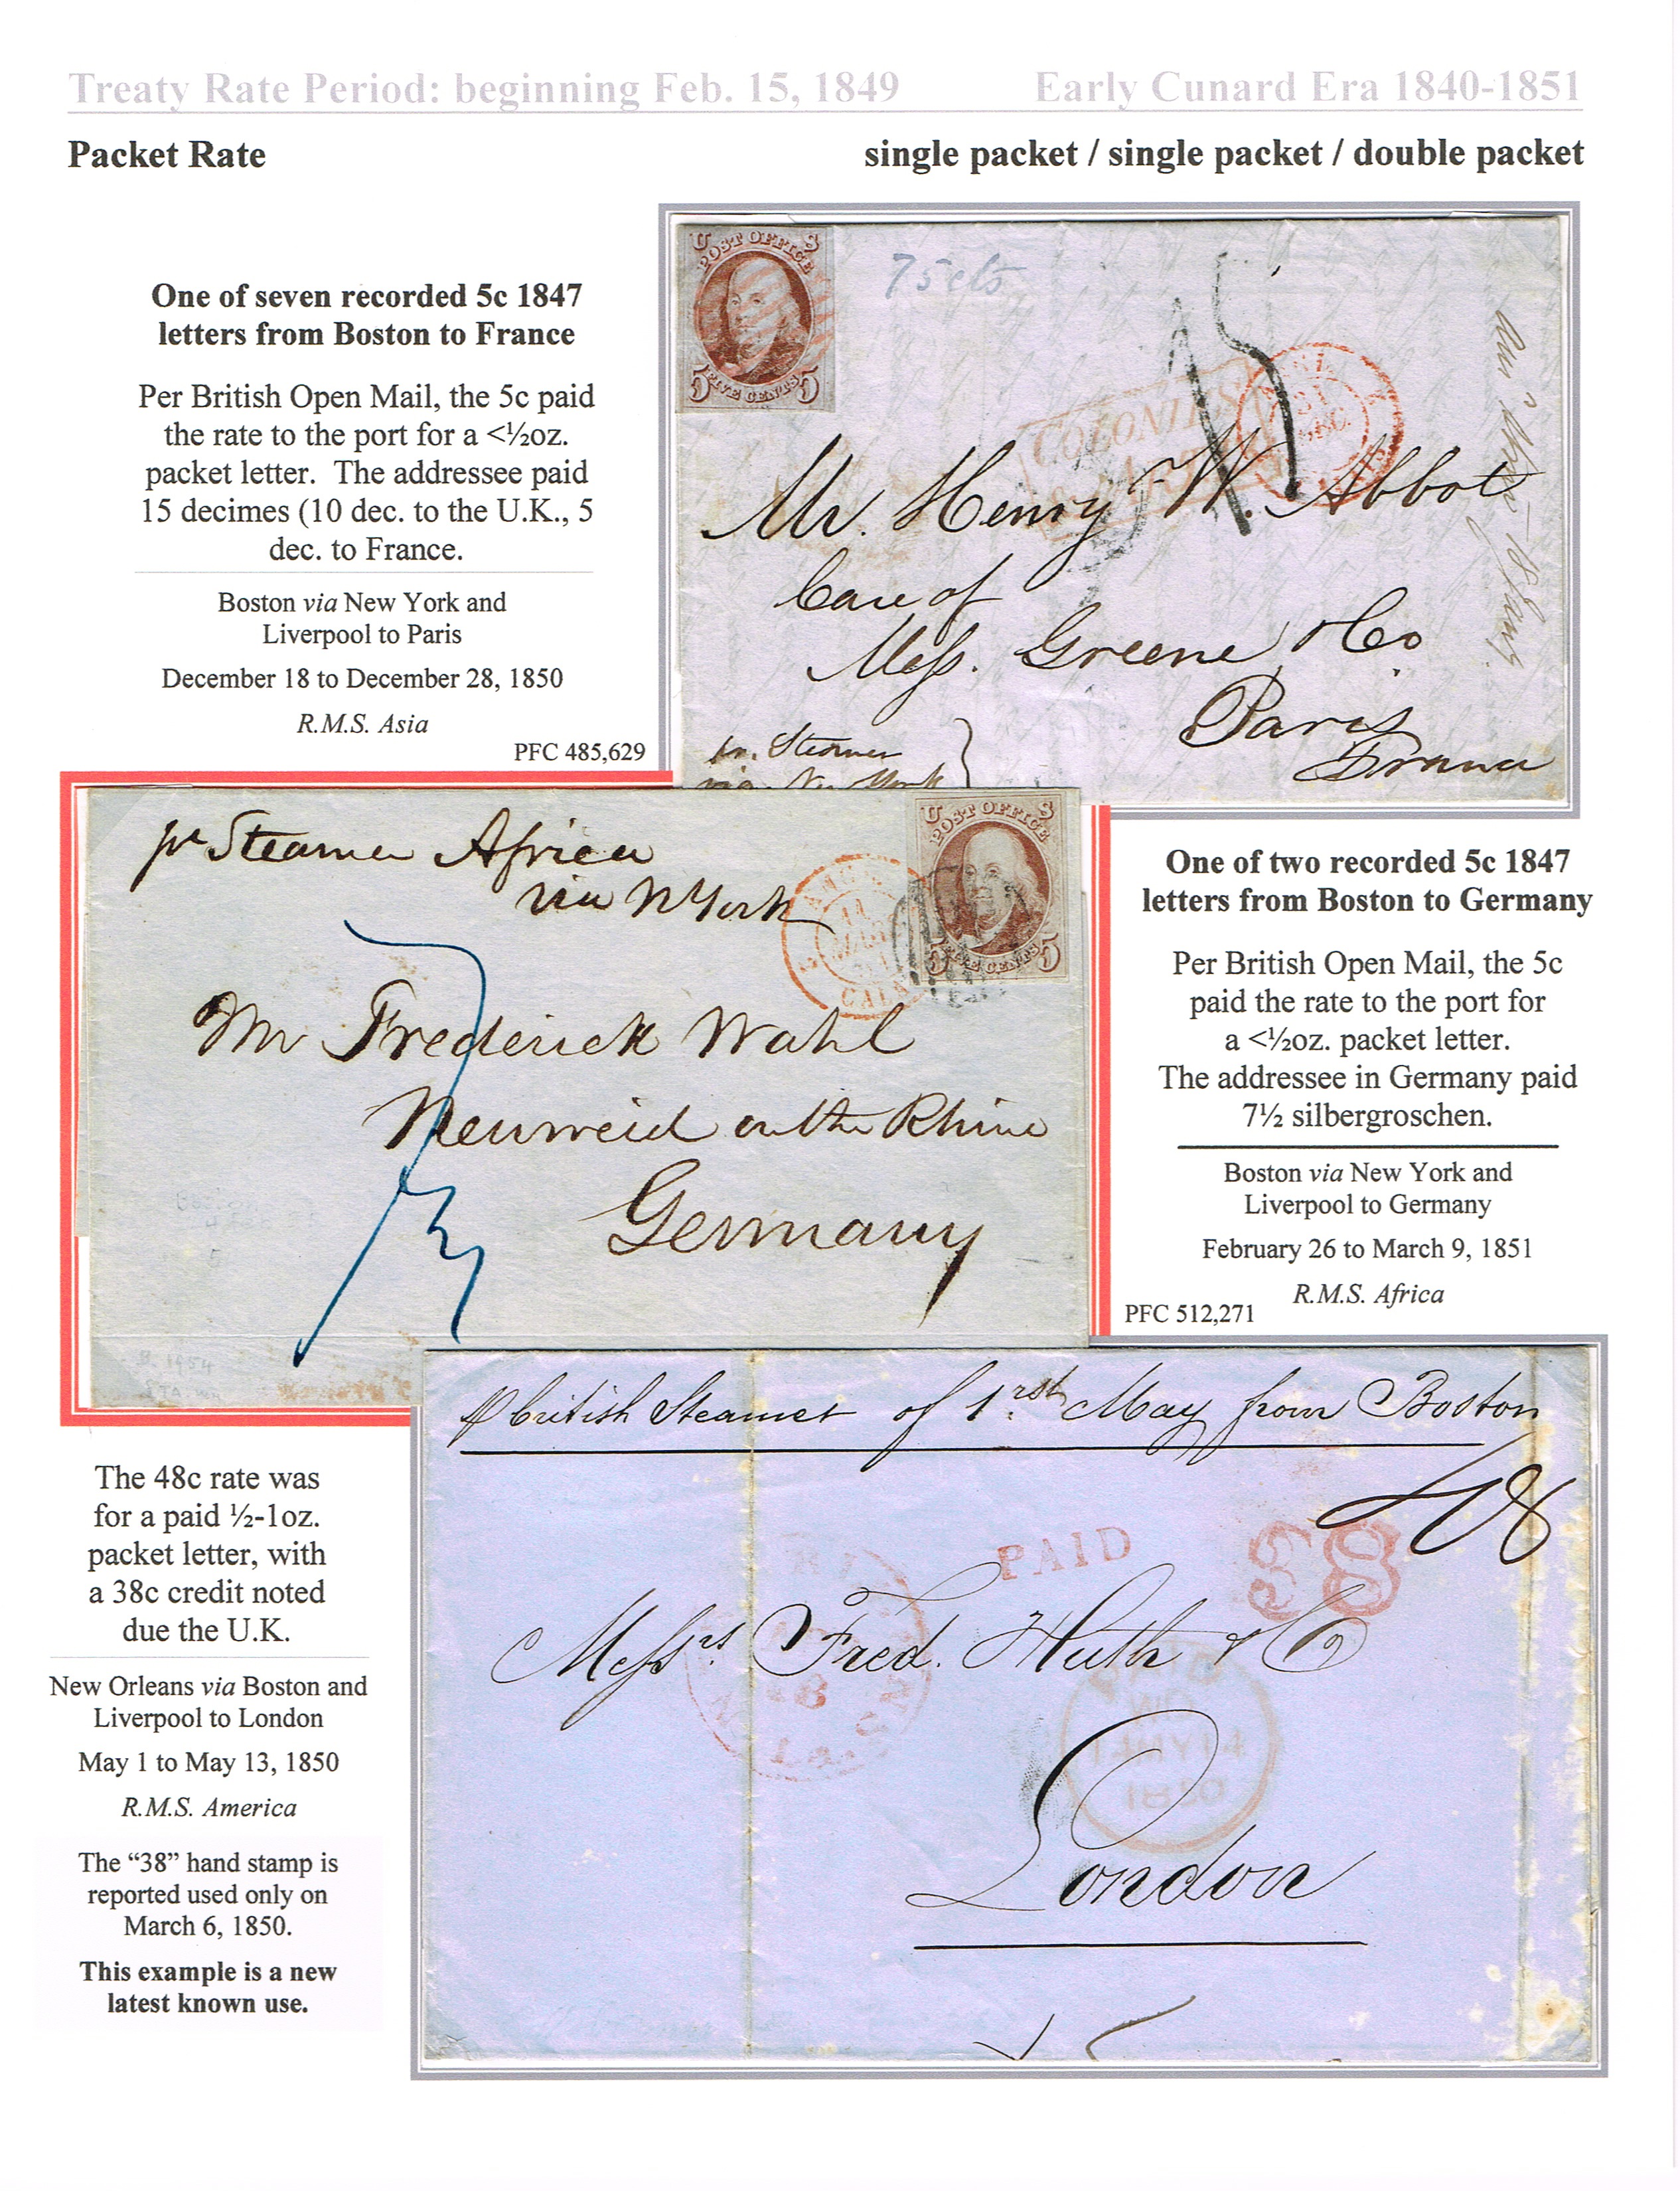 Treaty Rate Period: beginning Feb. 15, 1849 Early Cunard Era 1840-1851
Packet Rate single packet / single packet / double packet
One of seven recorded 5c 1847
letters from Boston to France
Per British Open Mail, the 5c paid
the rate to the port for a <½oz.
packet letter. The addressee paid
15 decimes (10 dec. to the U.K., 5
dec. to France.
Boston via New York and
Liverpool to Paris
December 18 to December 28, 1850
R.M.S. Asia
PFC 485,629
U S
POST OFFICE
5 FIVE CENTS 5
75 cts
COLONIES
Mr. Henry W. Abbot
Care of
Mess. Greene & Co
Paris
France
pr. Steamer
via New York
pr Steamer Africa
via N York
U S
POST OFFICE
5 FIVE CENTS 5
Mr Frederick Wahl
Neuweid on the Rhine
Germany
One of two recorded 5c 1847
letters from Boston to Germany
Per British Open Mail, the 5c
paid the rate to the port for
a <½oz. packet letter.
The addressee in Germany paid
7½ silbergroschen.
Boston via New York and
Liverpool to Germany
February 26 to March 9, 1851
R.M.S. Africa
PFC 512,271
The 48c rate was
for a paid ½-1oz.
packet letter, with
a 38c credit noted
due the U.K.
New Orleans via Boston and
Liverpool to London
May 1 to May 13, 1850
R.M.S. America
The “38” hand stamp is
reported used only on
March 6, 1850.
This example is a new
latest known use.
british Steamer of 1rst May from Boston
48
PAID
38
Messrs Fred. Huth & Co
London